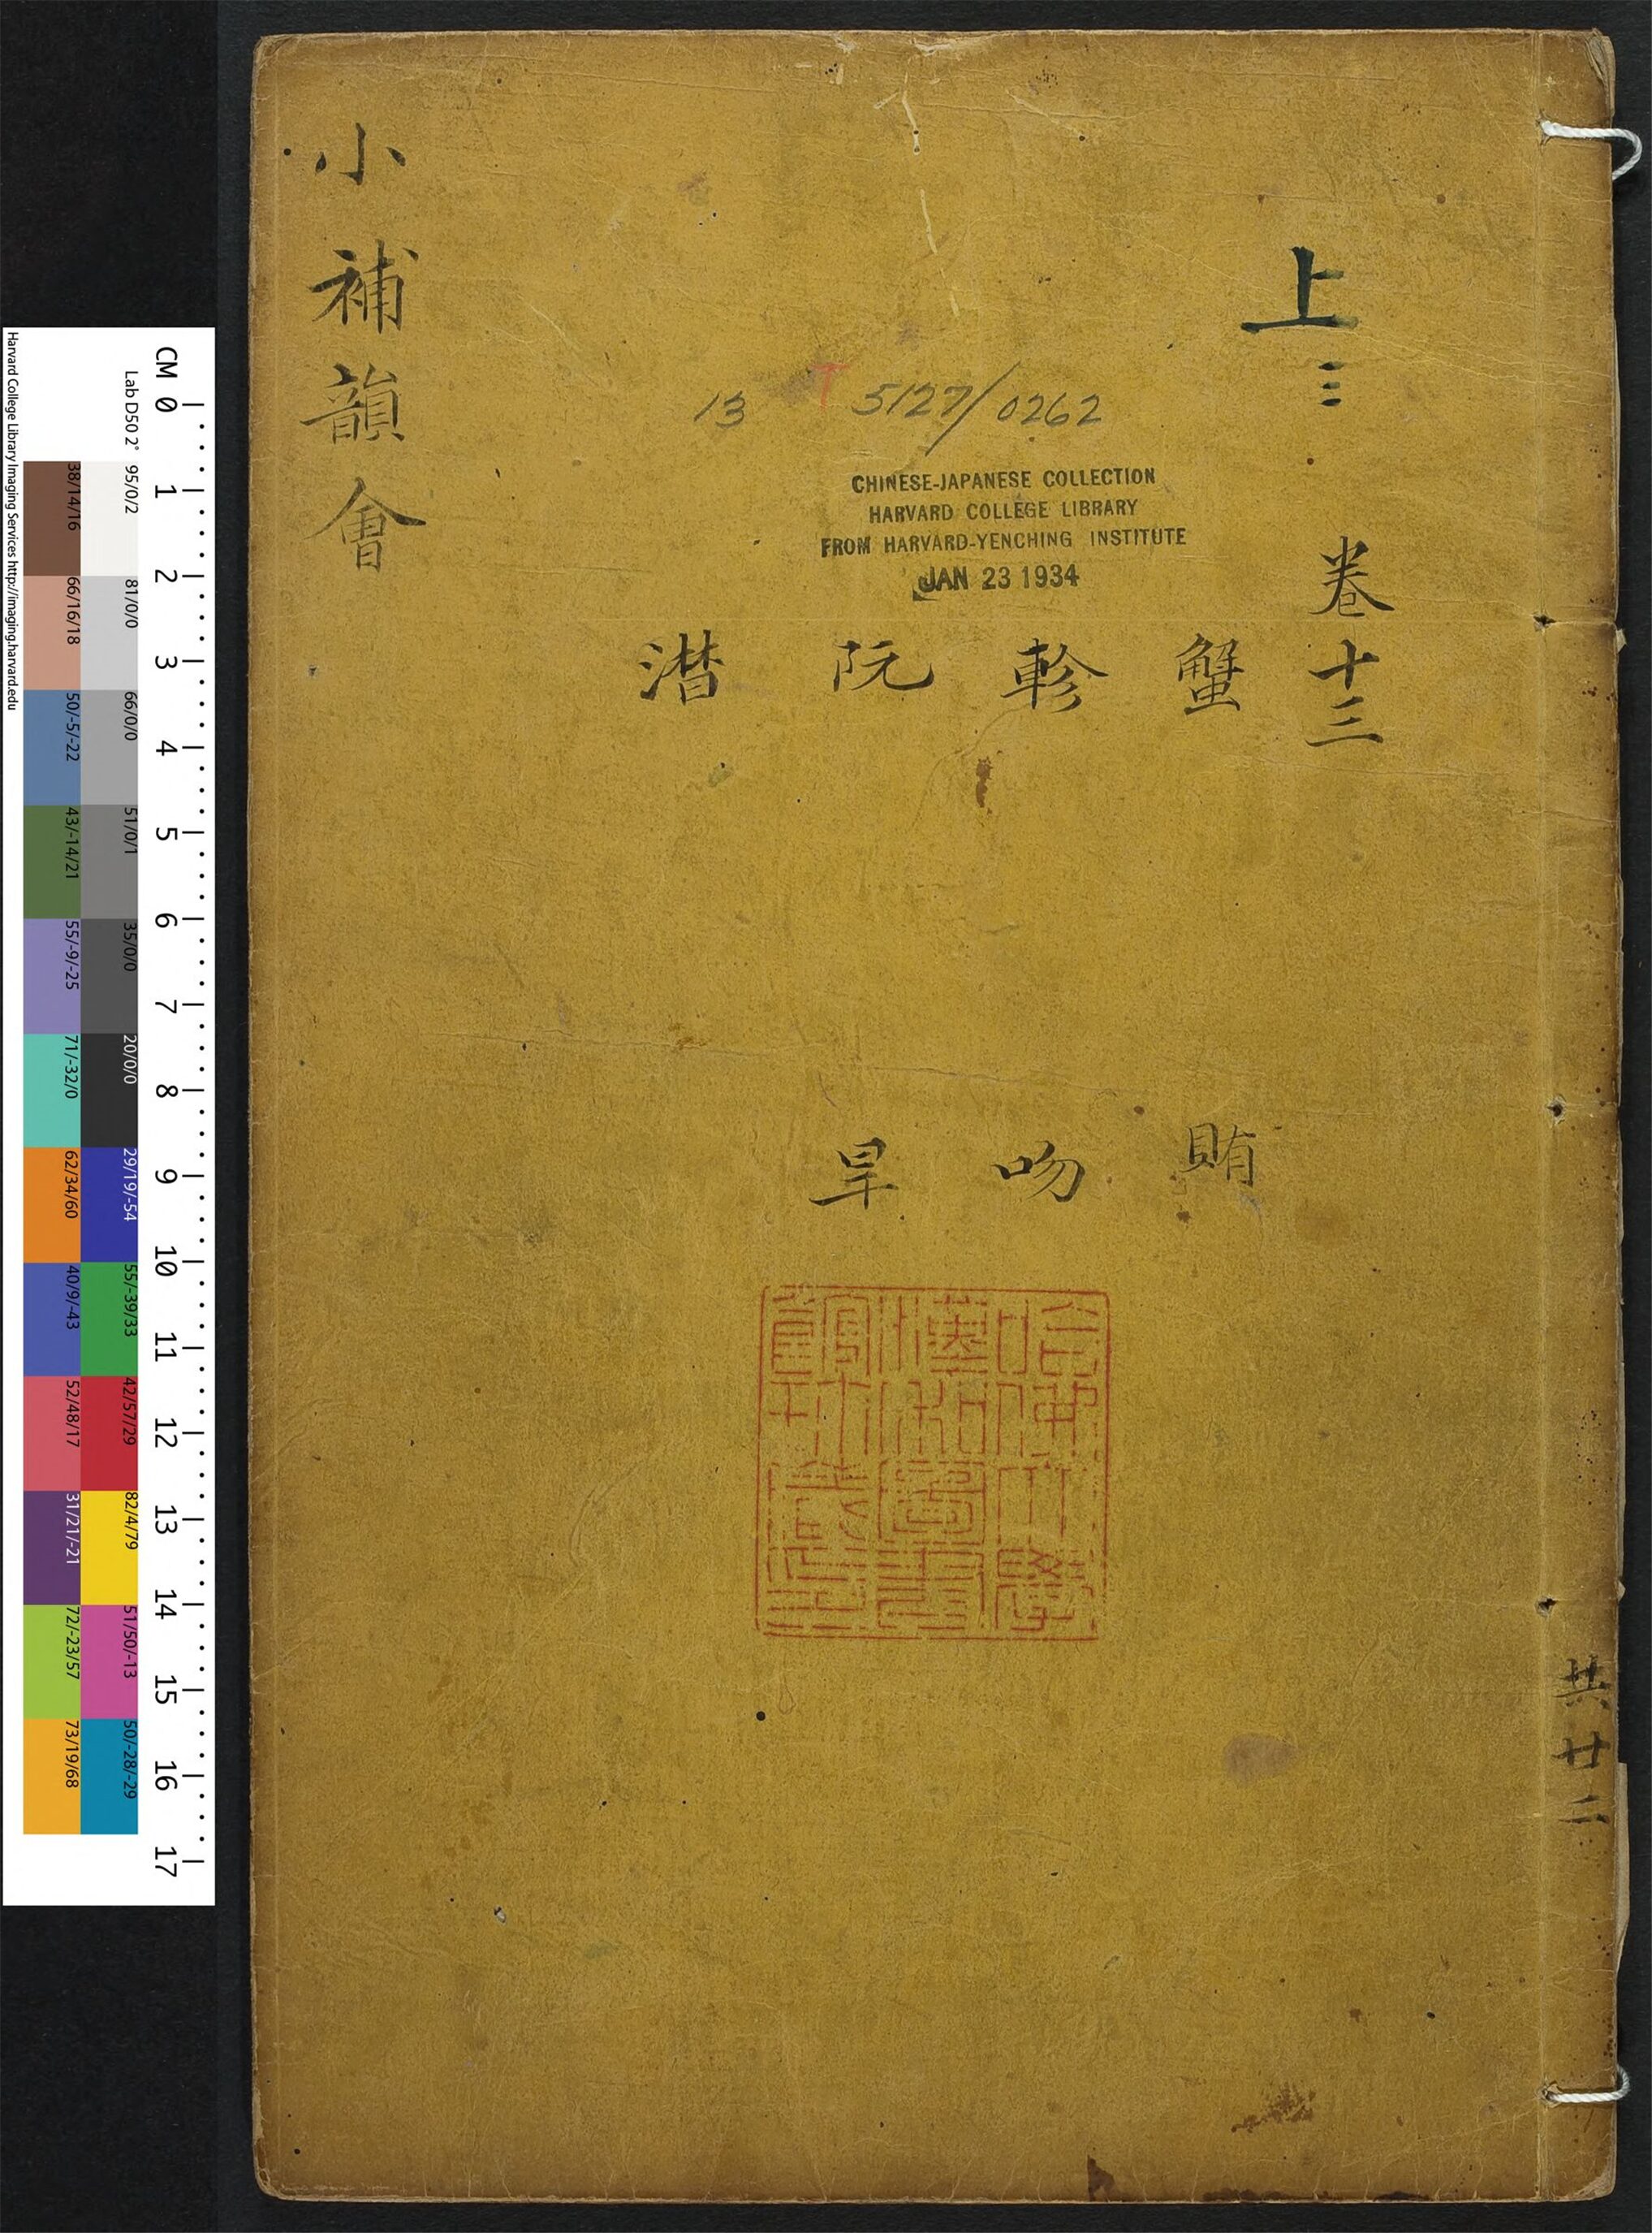 共廿二
上三
卷十三
蟹
軫
阮
潸
賄
吻
旱
小補韻會
13 T 5127/0262
CHINESE-JAPANESE COLLECTION
HARVARD COLLEGE LIBRARY
FROM HARVARD-YENCHING INSTITUTE
JAN 23 1934
哈佛大學
漢和圖書
館珍藏印
CM 0 1 2 3 4 5 6 7 8 9 10 11 12 13 14 15 16 17
Lab D50 2° 95/0/2 81/0/0 66/0/0 51/0/1 35/0/0 20/0/0 29/19/-54 55/-39/33 42/57/29 82/4/79 51/50/-13 50/-28/-29
38/14/16 66/16/18 50/-5/-22 43/-14/21 55/-9/-25 71/-32/0 62/34/60 40/9/-43 52/48/17 31/21/-21 72/-23/57 73/19/68
Harvard College Library Imaging Services http://imaging.harvard.edu